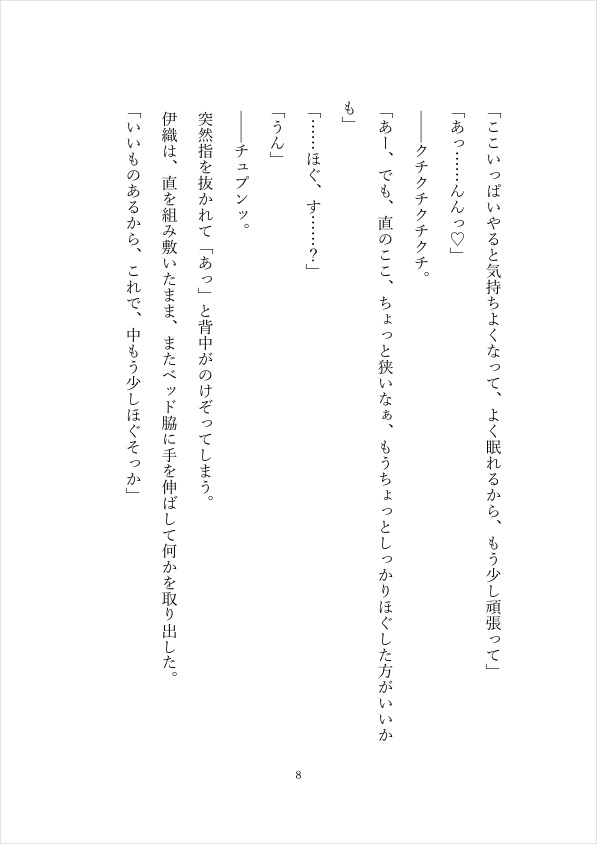 「ここいっぱいやると気持ちよくなって、よく眠れるから、もう少し頑張って」
「あっ……んんっ♡」
――クチクチクチクチ。
「あー、でも、直のここ、ちょっと狭いなぁ、もうちょっとしっかりほぐした方がいいか
も」
「……ほぐ、す……？」
「うん」
――チュプンッ。
突然指を抜かれて「あっ」と背中がのけぞってしまう。
伊織は、直を組み敷いたまま、またベッド脇に手を伸ばして何かを取り出した。
「いいものあるから、これで、中もう少しほぐそっか」
8